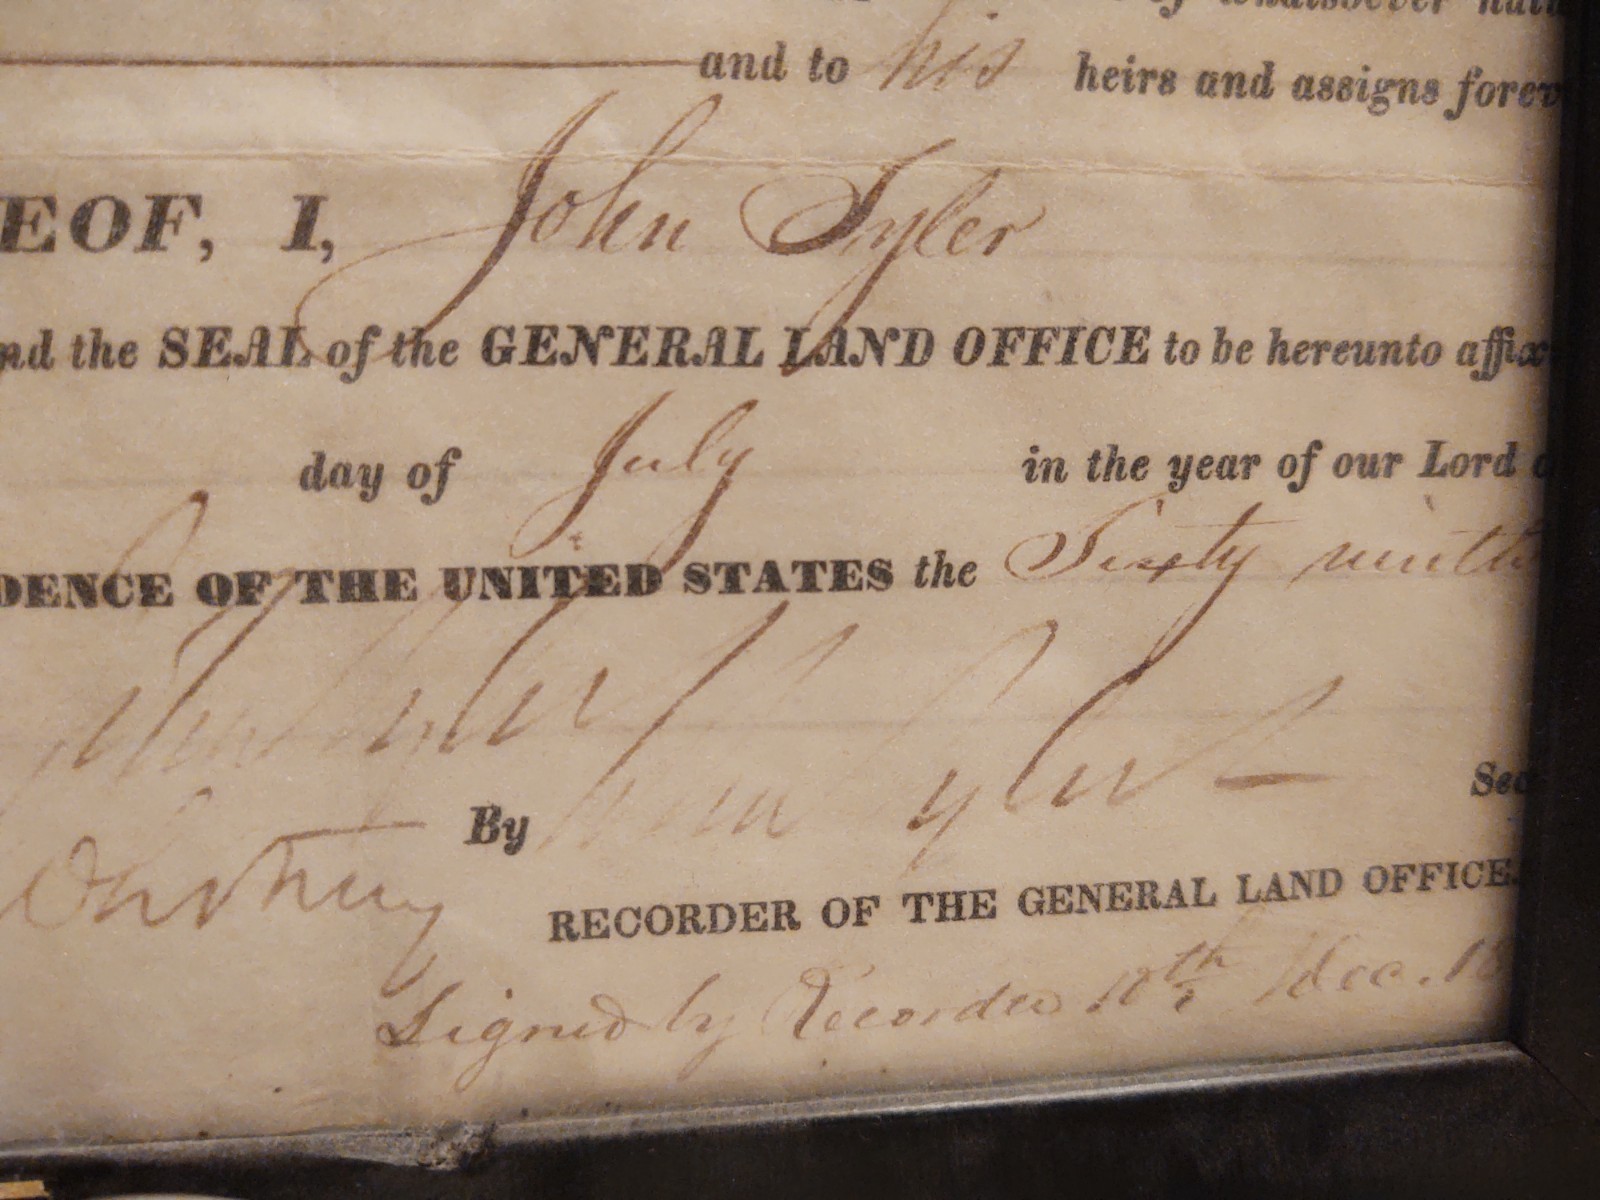 whatsoever
and to his heirs and assigns forev
EOF, I, John Tyler
nd the SEAL of the GENERAL LAND OFFICE to be hereunto affix
day of July in the year of our Lord
DENCE OF THE UNITED STATES the Sixty ninth
By Tyler Sec
RECORDER OF THE GENERAL LAND OFFICE.
Signed by Recorder 10th Dec. 18